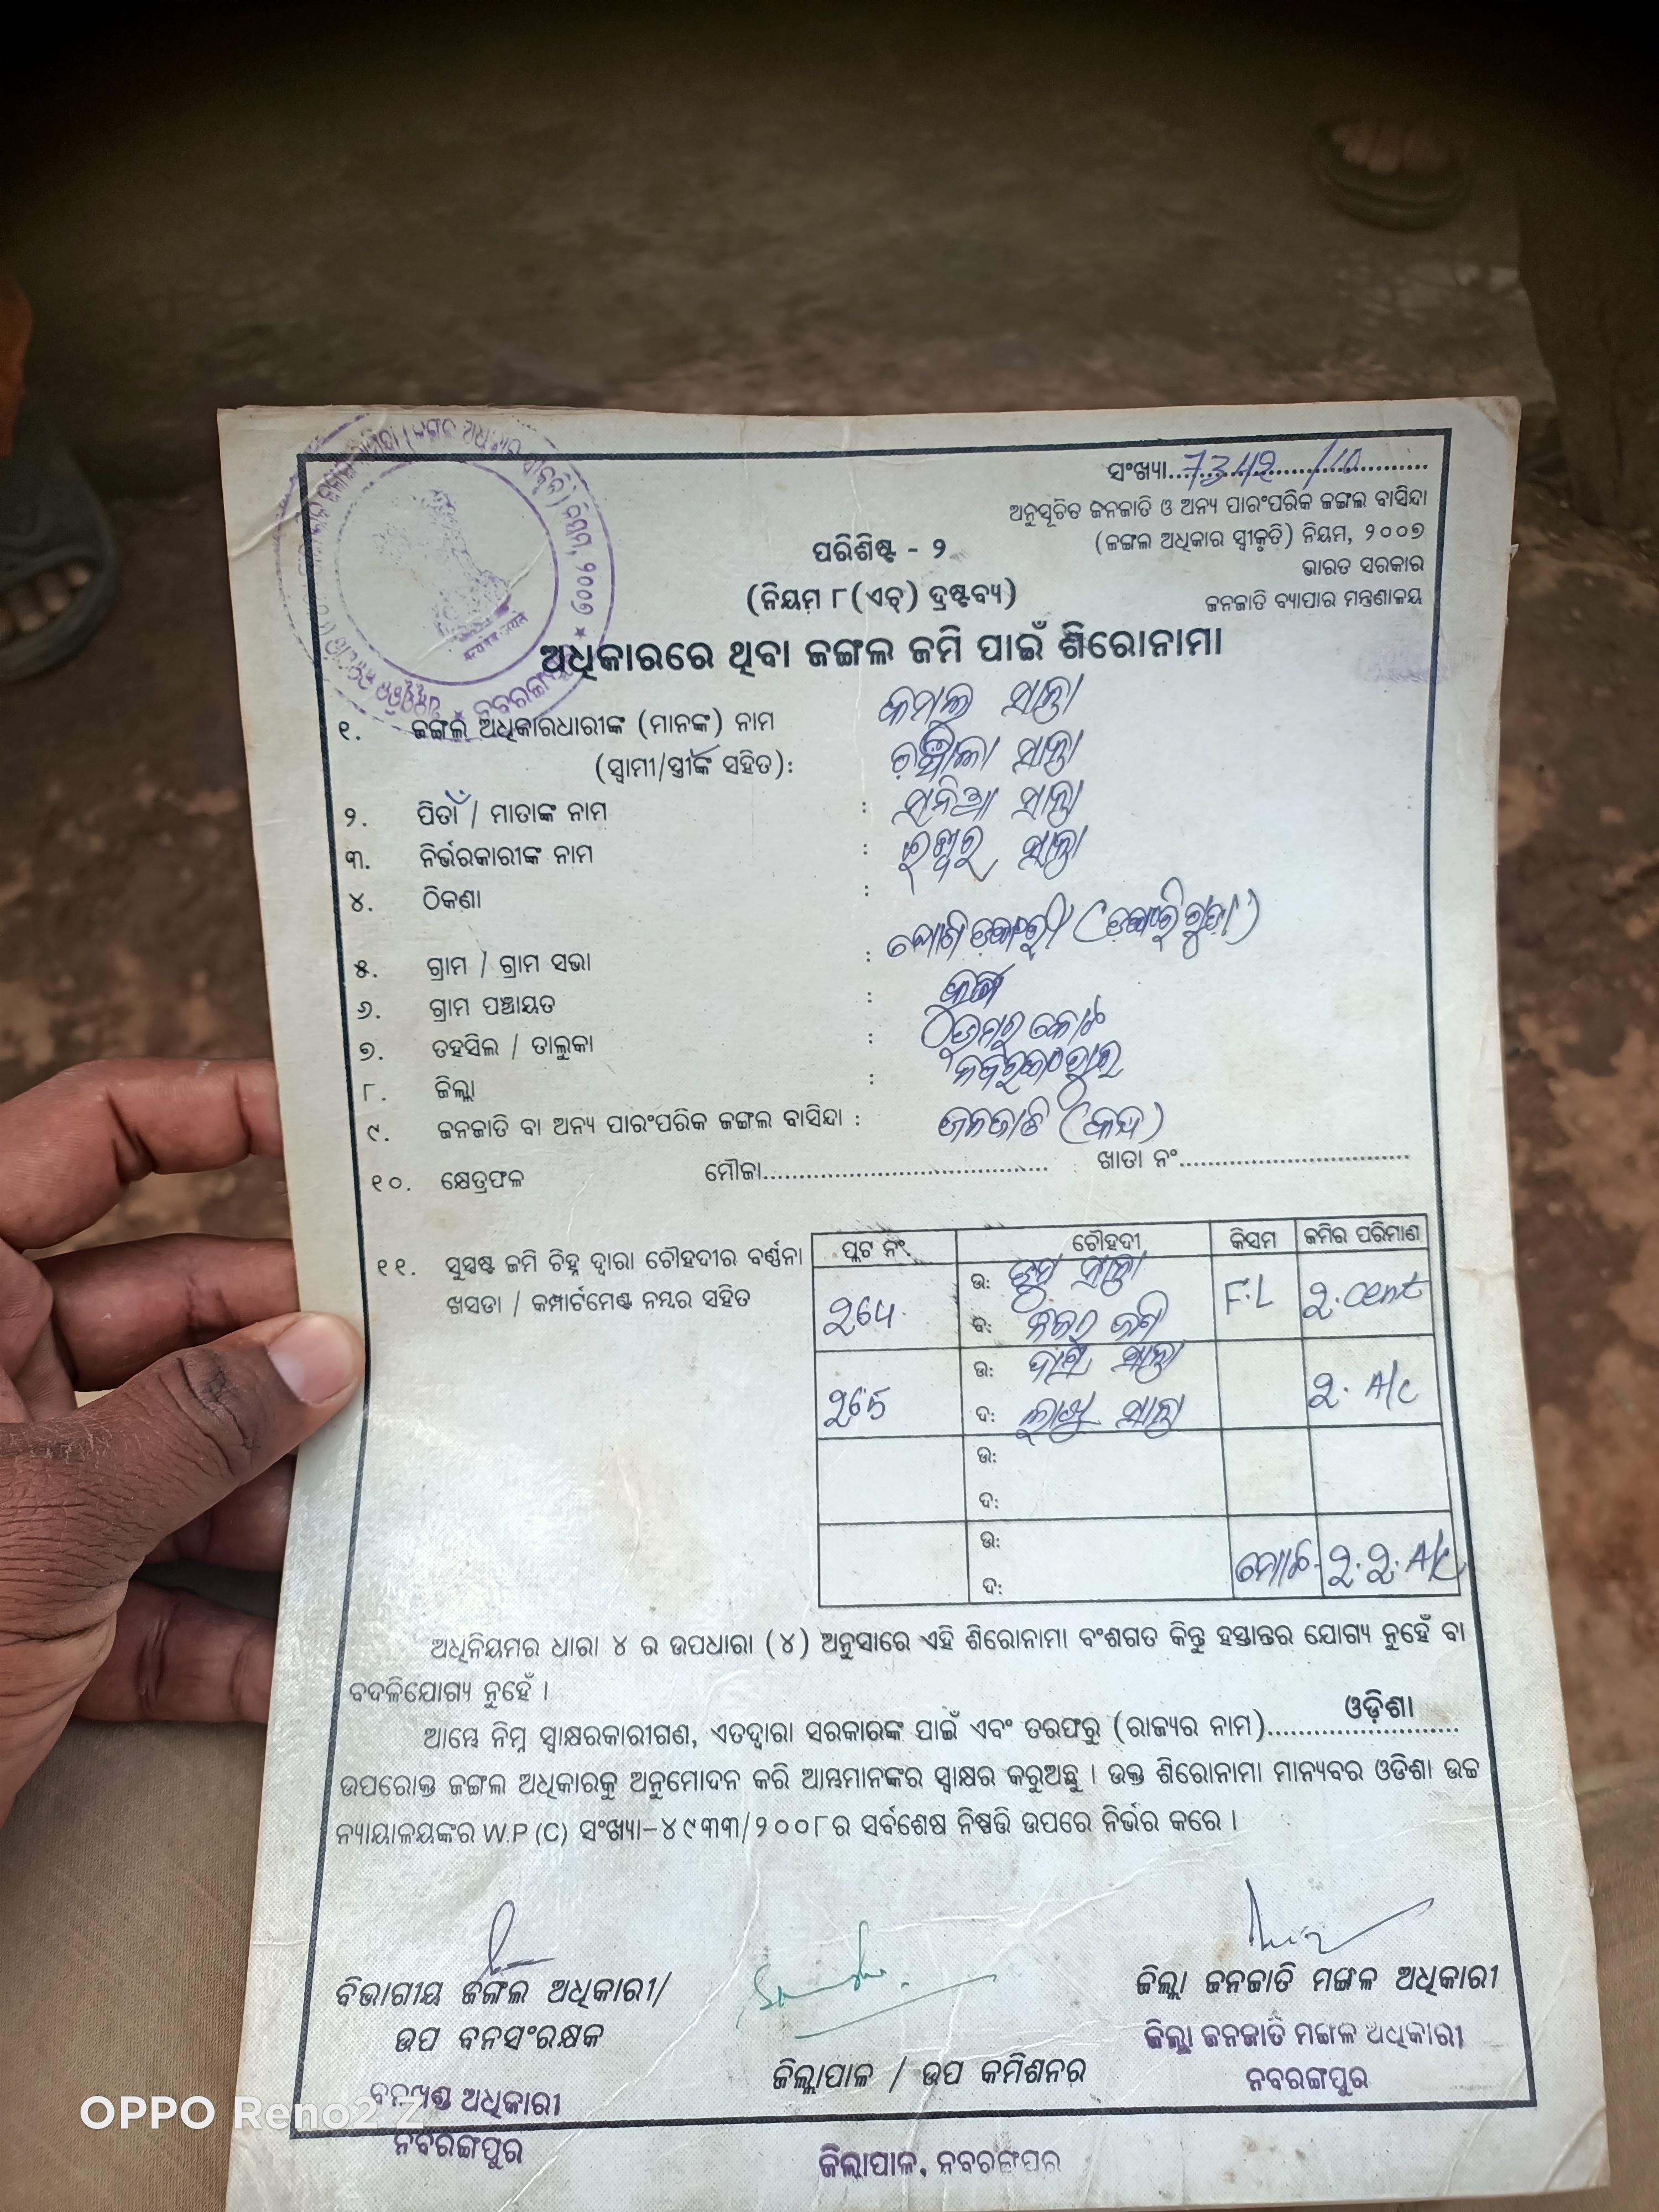 ସଂଖ୍ୟା 7342 /10
ଅନୁସୂଚିତ ଜନଜାତି ଓ ଅନ୍ୟ ପାରଂପରିକ ଜଙ୍ଗଲ ବାସିନ୍ଦା
(ଜଙ୍ଗଲ ଅଧିକାର ସ୍ୱୀକୃତି) ନିୟମ, ୨୦୦୭
ଭାରତ ସରକାର
ଜନଜାତି ବ୍ୟାପାର ମନ୍ତ୍ରଣାଳୟ
ପରିଶିଷ୍ଟ - ୨
(ନିୟମ ୮(ଏଚ୍) ଦ୍ରଷ୍ଟବ୍ୟ)
ଅଧିକାରରେ ଥିବା ଜଙ୍ଗଲ ଜମି ପାଇଁ ଶିରୋନାମା
୧. ଜଙ୍ଗଲ ଅଧିକାରଧାରୀଙ୍କ (ମାନଙ୍କ) ନାମ କମଲୁ ସାନ୍ତା
(ସ୍ୱାମୀ/ସ୍ତ୍ରୀଙ୍କ ସହିତ): ସାନ୍ତା
୨. ପିତା / ମାତାଙ୍କ ନାମ : ସନିଆ ସାନ୍ତା
୩. ନିର୍ଭରକାରୀଙ୍କ ନାମ : ସାନ୍ତା
୪. ଠିକଣା :
୫. ଗ୍ରାମ / ଗ୍ରାମ ସଭା :
୬. ଗ୍ରାମ ପଞ୍ଚାୟତ :
୭. ତହସିଲ / ତାଲୁକା :
୮. ଜିଲ୍ଲା :
୯. ଜନଜାତି ବା ଅନ୍ୟ ପାରଂପରିକ ଜଙ୍ଗଲ ବାସିନ୍ଦା : ଜନଜାତି (କନ୍ଧ)
୧୦. କ୍ଷେତ୍ରଫଳ ମୌଜା ଖାତା ନଂ
୧୧. ସୁସ୍ପଷ୍ଟ ଜମି ଚିହ୍ନ ଦ୍ୱାରା ଚୌହଦୀର ବର୍ଣ୍ଣନା
ଖସଡା / କମ୍ପାର୍ଟମେଣ୍ଟ ନମ୍ବର ସହିତ
ପ୍ଲଟ ନଂ. ଚୌହଦୀ କିସମ ଜମିର ପରିମାଣ
ଉ: ସାନ୍ତା F.L ୨. cent
ଦ:
ଉ: ସାନ୍ତା ୨. A/c
ଦ: ସାନ୍ତା
ଉ:
ଦ:
ଉ:
ଦ: ମୋଟ- ୨.୨. A/c
ଅଧିନିୟମର ଧାରା ୪ ର ଉପଧାରା (୪) ଅନୁସାରେ ଏହି ଶିରୋନାମା ବଂଶଗତ କିନ୍ତୁ ହସ୍ତାନ୍ତର ଯୋଗ୍ୟ ନୁହେଁ ବା
ବଦଳିଯୋଗ୍ୟ ନୁହେଁ ।
ଆମ୍ଭେ ନିମ୍ନ ସ୍ୱାକ୍ଷରକାରୀଗଣ, ଏତଦ୍ୱାରା ସରକାରଙ୍କ ପାଇଁ ଏବଂ ତରଫରୁ (ରାଜ୍ୟର ନାମ) ଓଡ଼ିଶା
ଉପରୋକ୍ତ ଜଙ୍ଗଲ ଅଧିକାରକୁ ଅନୁମୋଦନ କରି ଆମ୍ଭମାନଙ୍କର ସ୍ୱାକ୍ଷର କରୁଅଛୁ । ଉକ୍ତ ଶିରୋନାମା ମାନ୍ୟବର ଓଡିଶା ଉଚ୍ଚ
ନ୍ୟାୟାଳୟଙ୍କର W.P (C) ସଂଖ୍ୟା-୪୯୩୩/୨୦୦୮ ର ସର୍ବଶେଷ ନିଷ୍ପତ୍ତି ଉପରେ ନିର୍ଭର କରେ ।
ବିଭାଗୀୟ ଜଙ୍ଗଲ ଅଧିକାରୀ/
ଉପ ବନସଂରକ୍ଷକ
ବନଖଣ୍ଡ ଅଧିକାରୀ
ନବରଙ୍ଗପୁର
ଜିଲ୍ଲାପାଳ / ଉପ କମିଶନର
ଜିଲ୍ଲାପାଳ, ନବରଙ୍ଗପୁର
ଜିଲ୍ଲା ଜନଜାତି ମଙ୍ଗଳ ଅଧିକାରୀ
ଜିଲ୍ଲା ଜନଜାତି ମଙ୍ଗଳ ଅଧିକାରୀ
ନବରଙ୍ଗପୁର
OPPO Reno2 Z